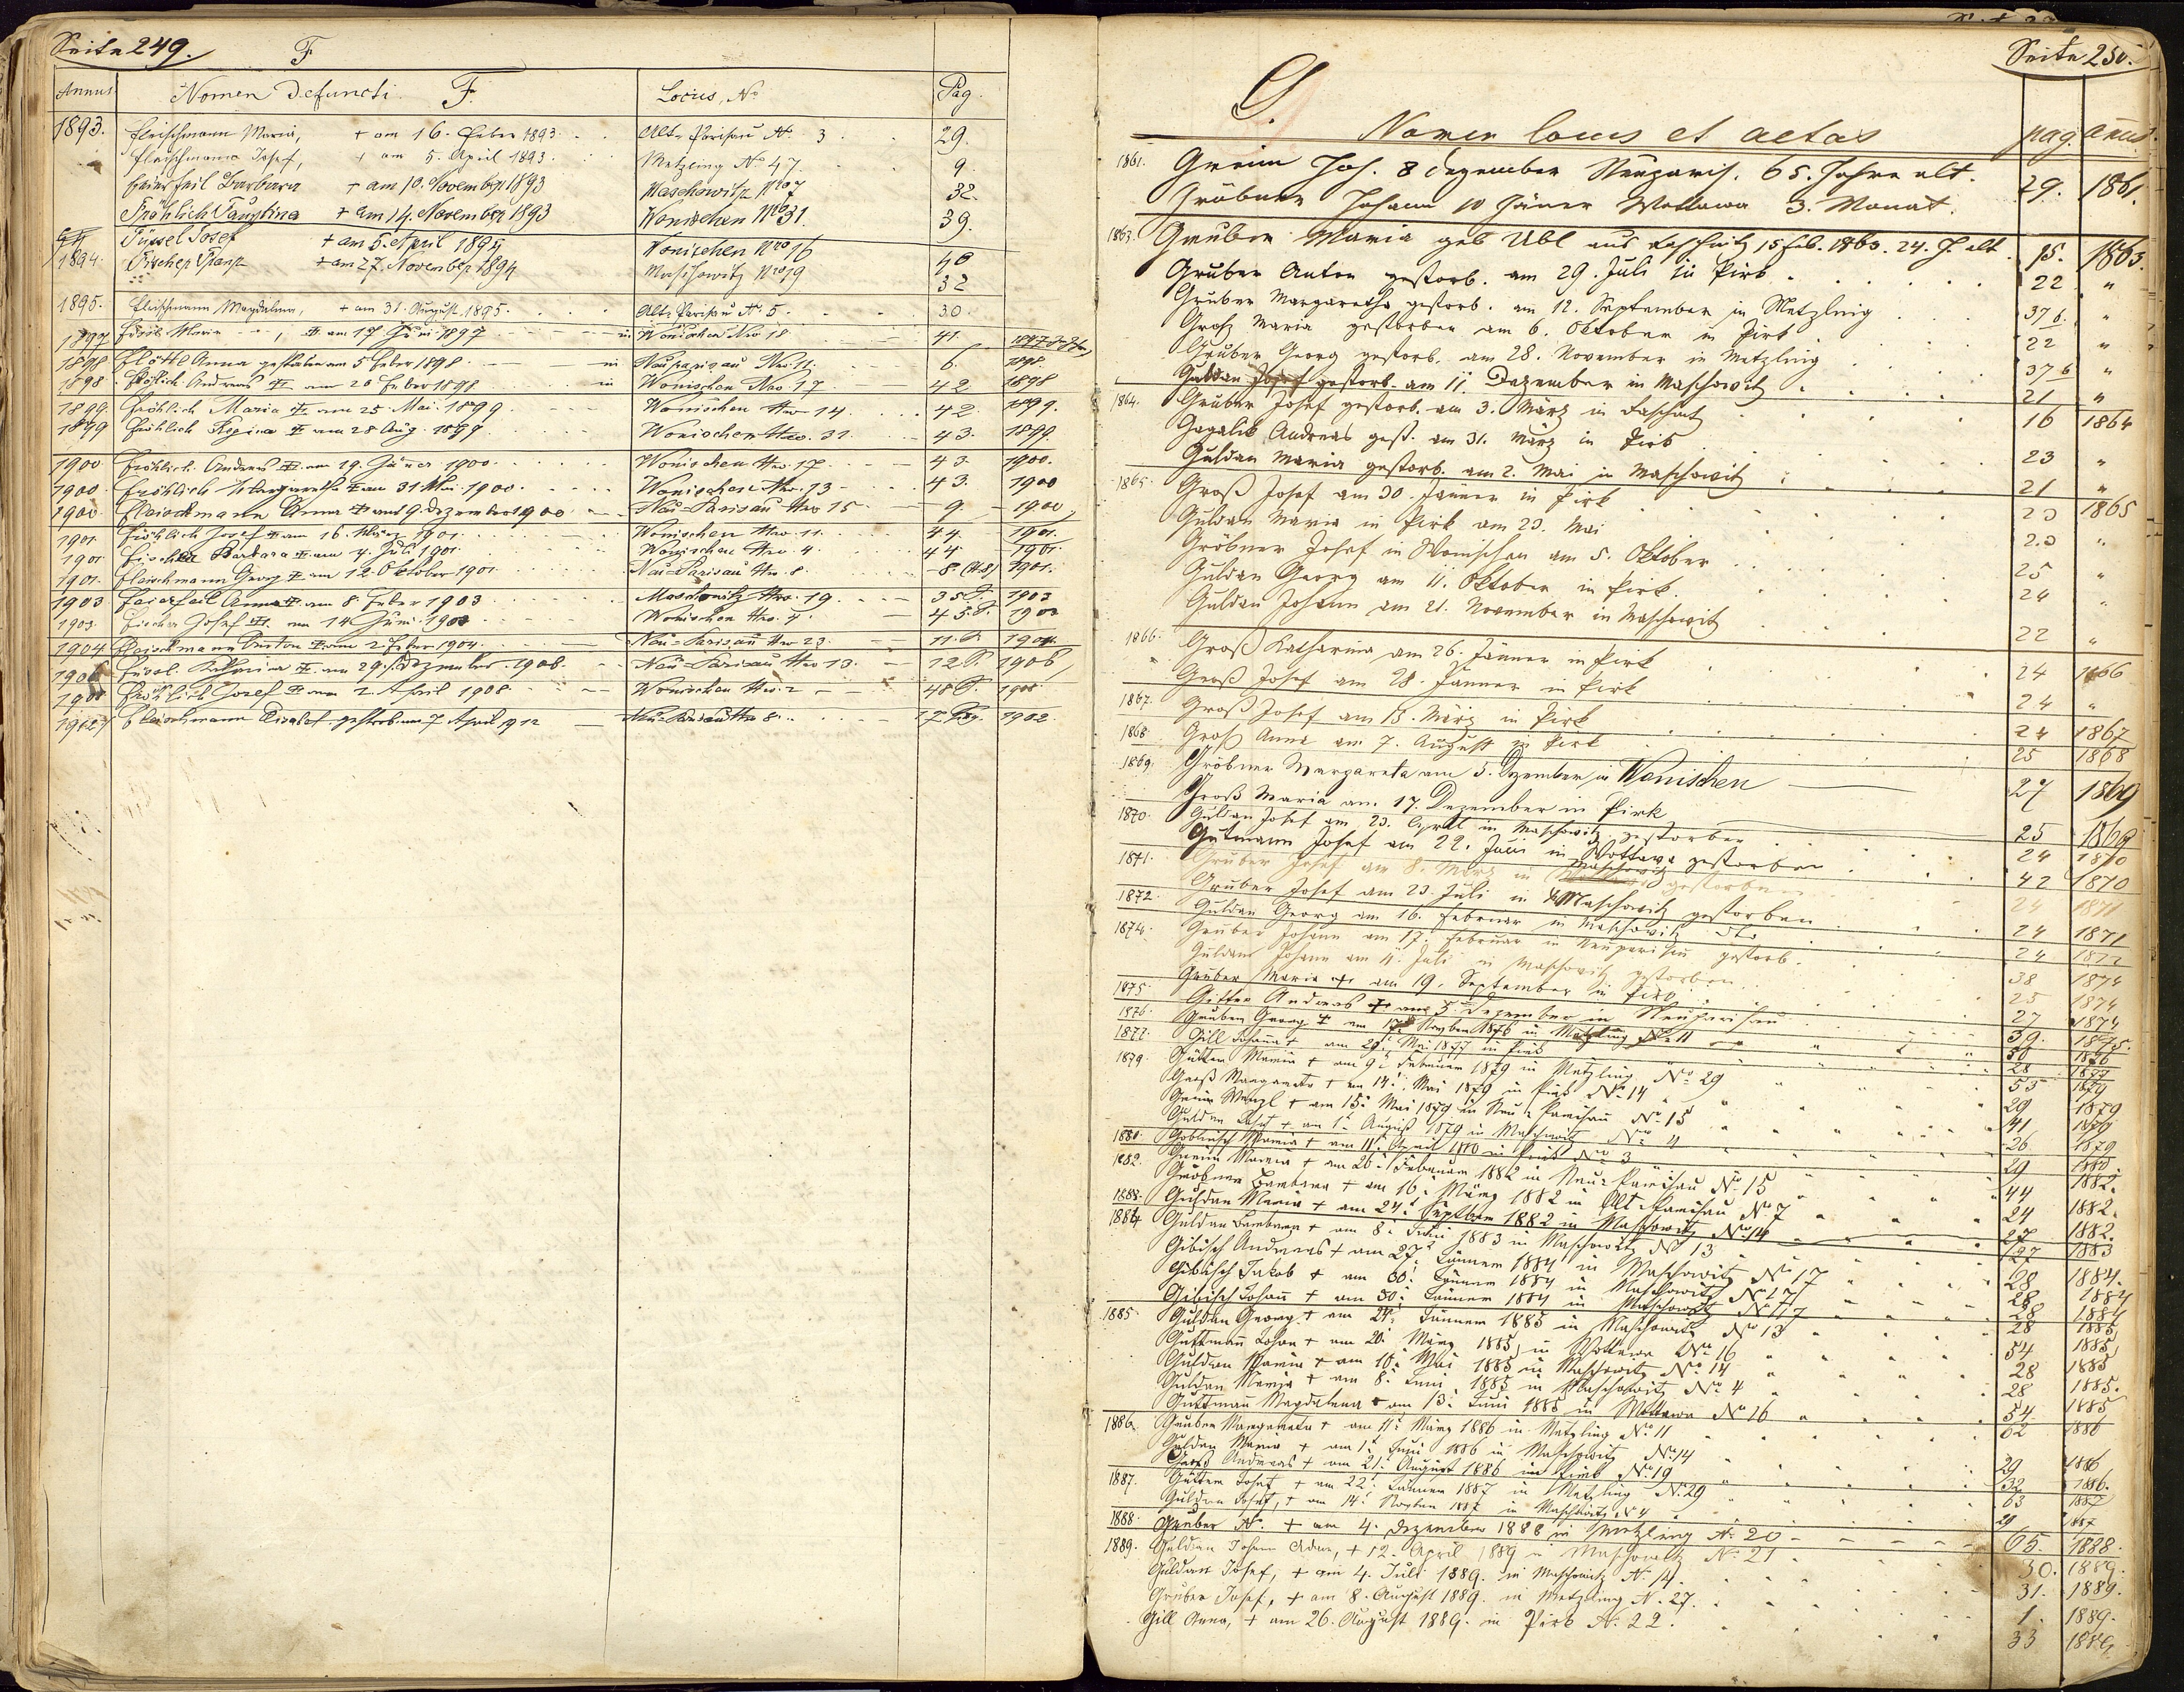 Seite 249. F
Annus Nomen Defuncti. F. Locus, No Pag.
1893. Fleischmann Maria, + am 16. Feber 1893. Alt-Parisau N. 3 29.
Fleischmann Josef, + am 5. April 1893. Metzling No 47. 9.
Barbara + am 10. November 1893 Maschowitz Nro 7 32.
Fröhlich Faustina + am 14. November 1893 Wonischen Nro 31. 39.
Füssel Josef + am 5. April 1894 Wonischen Nro 16 40
1894. Fischer Franz + am 27. November 1894 Maschowitz Nro 19 32
1895. Fleischmann Magdalena, + am 31. August 1895. Alt-Parisau N. 5. 30.
1897 Maria + am 17 Juni 1897 in Wonischen Nro 18 41.
1898 Flöttl Anna gestorben am 5 Feber 1898 in Neuparisau Nro 11. 6. 1898.
1898. Fröhlich Andreas + am 20 Feber 1898 in Wonischen Nro 17 42 1898
1899. Fröhlich Maria + am 25. Mai 1899 Wonischen Nro 14. 42. 1899.
1899 Fröhlich Regina + am 28 Aug. 1899 Wonischen Nro. 31 43. 1899.
1900 Fröhlich Andreas + am 19. Jäner 1900 Wonischen Nro. 17. 43. 1900.
1900. Fröhlich Margaretha + am 31 Mai 1900. Wonischen Nro. 13 43. 1900
1900 Fleischmann Anna + am 9. Dezember 1900 Neu-Parisau Nro 15 9. 1900
1901. Fröhlich Josef + am 16. März 1901. Wonischen Nro. 11. 44. 1901.
1901 Fischer Barbara + am 4. Juli 1901. Wonischen Nro 4. 44. 1901.
1901. Fleischmann Georg + am 12. Oktober 1901 Neu-Parisau Nro. 8. 8. 1901.
1903 Anna + am 8. Feber 1903 Maschowitz Nro. 19 35 1903
1903. Fischer Josef + am 14 Juni 1903 Wonischen Nro. 4. 45. 1903
1904 Fleischmann Anton + am 2 Feber 1904 Neu-Parisau Nro 23. 11. 1904.
1906 Füssl Katharina + am 29. Dezember 1906. Neu-Parisau Nro 13. 12 1906
1908 Fröhlich Josef + am 2. April 1908 Wonischen Nro. 2 48 1908
1912 Fleischmann Elisabet. gestorben 7. April 1912 Neu-Parisau Nro 8. 17
Seite 250.
G.
Nomen locus et aetas pag. annus.
1861. Greim Joh. 8 Dezember Neuparis. 65. Jahre alt. 29. 1861.
Gröbner Johann 10 Jäner Wottawa 3. Monat.
1863. Gruber Maria geb Übl aus 15 Feb. 1863. 24. J. alt 15. 1863.
Gruber Anton gestorb. am 29. Juli in Pirk 22 "
Gruber Margaretha gestorb. am 12. September in Metzling 37 b. "
Groß Maria gestorben am 6. Oktober in Pirk 22 "
Gruber Georg gestorb. am 28. November in Metzling 37 b "
Guldan Josef gestorb. am 11. Dezember in Maschowitz 21 "
1864. Gruber Josef gestorb. am 3. März in 16 1864
Andreas gest. am 31. März in Pirk 23 "
Guldan Maria gestorb. am 2. Mai in Maschowitz 21 "
1865. Groß Josef am 30. Jänner in Pirk 23 1865
Guldan Maria in Pirk am 23. Mai 23 "
Gröbner Josef in Wonischen am 5. Oktober 25 "
Guldan Georg am 11. Oktober in Pirk. 24 "
Guldan Johann am 21. November in Maschowitz 22 "
1866. Groß Katharina am 26. Jänner in Pirk 24 1866
" Groß Josef am 28. Jänner in Pirk 24 "
1867. Groß Josef am 13. März in Pirk 24 1867
1868 Groß Anna am 7. August in Pirk 25 1868
1869. Gröbner Margareta am 5. Dezember in Wonischen 27 1869
Groß Maria am 17. Dezember in Pirk 25 1869
1870. Guldan Josef am 23. April in Maschowitz gestorben 24 1870
Gutmann Josef am 22. Juni in Wottawa gestorben 42 1870
1871. Gruber Josef am 8. März in Maschowitz gestorben 24 1871
Gruber Josef am 23. Juli in Maschowitz gestorben 24 1871
1872. Guldan Georg am 16. Februar in Maschowitz dto 24 1872
1874. Gruber Johann am 17. Februar in Neuparisau gestorb. 38 1874
Guldan Johann am 11. Juli in Maschowitz gestorben 25 1874
Gruber Maria + am 19. September in Pirk 27 1874
1875. Gitter Andreas + am 5. Dezember in Neuparisau 39. 1875.
1876. Gruber Georg + am Novber 1876 in Metzling No 11 50 1876
1877. Gill Johann + am 29. Mai 1877 in Pirk 28 1877
1879. Gütter Maria + am 9. Februar 1879 in Metzling No 29 53 1879
Groß Margareta + am 14. Mai 1879 in Pirk No 14 29 1879
Greim Wenzl + am 15. Mai 1879 in Neu-Parisau No 15 41 1879
Guldan Josef + am 1. August 1879 in Maschowitz No 4 26 1879
1880. Maria + am 11. April 1880 in Pirk No 3 29 1880.
1882. Greim Maria + am 26. Februar 1882 in Neu-Parisau No 15 44 1882.
Gröbner Barbara + am 16. März 1882 in Alt-Parisau No 7 24 1882.
Guldan Maria + am 24. Septber 1882 in Maschowitz No 14 27 1882.
1883. Guldan Barbara + am 8. Juni 1883 in Maschowitz No 13 27 1883
1884 Gibisch Andreas + am 27. Jänner 1884 in Maschowitz No 17 28 1884.
Gibisch Jakob + am 30. Jänner 1884 in Maschowitz No 17 28 1884
Gibisch Johann + am 30. Jänner 1884 in Maschowitz No 17 28 1884
1885. Guldan Georg + am 24. Jänner 1885 in Maschowitz No 13 28 1885
Guttmann Johan + am 20. März 1885 in Wottawa No 16 54 1885
Guldan Maria + am 10. Mai 1885 in Maschowitz No 14 28 1885
Guldan Maria + am 8. Juni 1885 in Maschowitz No 4 28 1885.
Guttmann Magdalena + am 13. Juni 1885 in Wottawa No 16 54 1885
1886. Gruber Margareta + am 11. März 1886 in Metzling No 11 62 1886
Guldan Maria + am 1. Juni 1886 in Maschowitz No 14 29 1886
Groß Andreas + am 21. August 1886 in Pirk No 19 32 1886.
1887. Gütter Josef + am 22. Jänner 1887 in Metzling No 29 63 1887
Guldan Josef, + am 14. Novber 1887 in Maschowitz No 4 29 1887
1888. Gruber N. + am 4. Dezember 1888 in Metzling N. 20 65. 1888.
1889. Guldan Johann Adam, + 12. April 1889 in Maschowitz No 21 30. 1889.
Guldan Josef, + am 4. Juli 1889. in Maschowitz N. 14. 31. 1889.
Gruber Josef, + am 8. August 1889. in Metzling N. 27. 1. 1889.
Gill Anna, + am 26. August 1889. in Pirk N. 22. 33 1889.